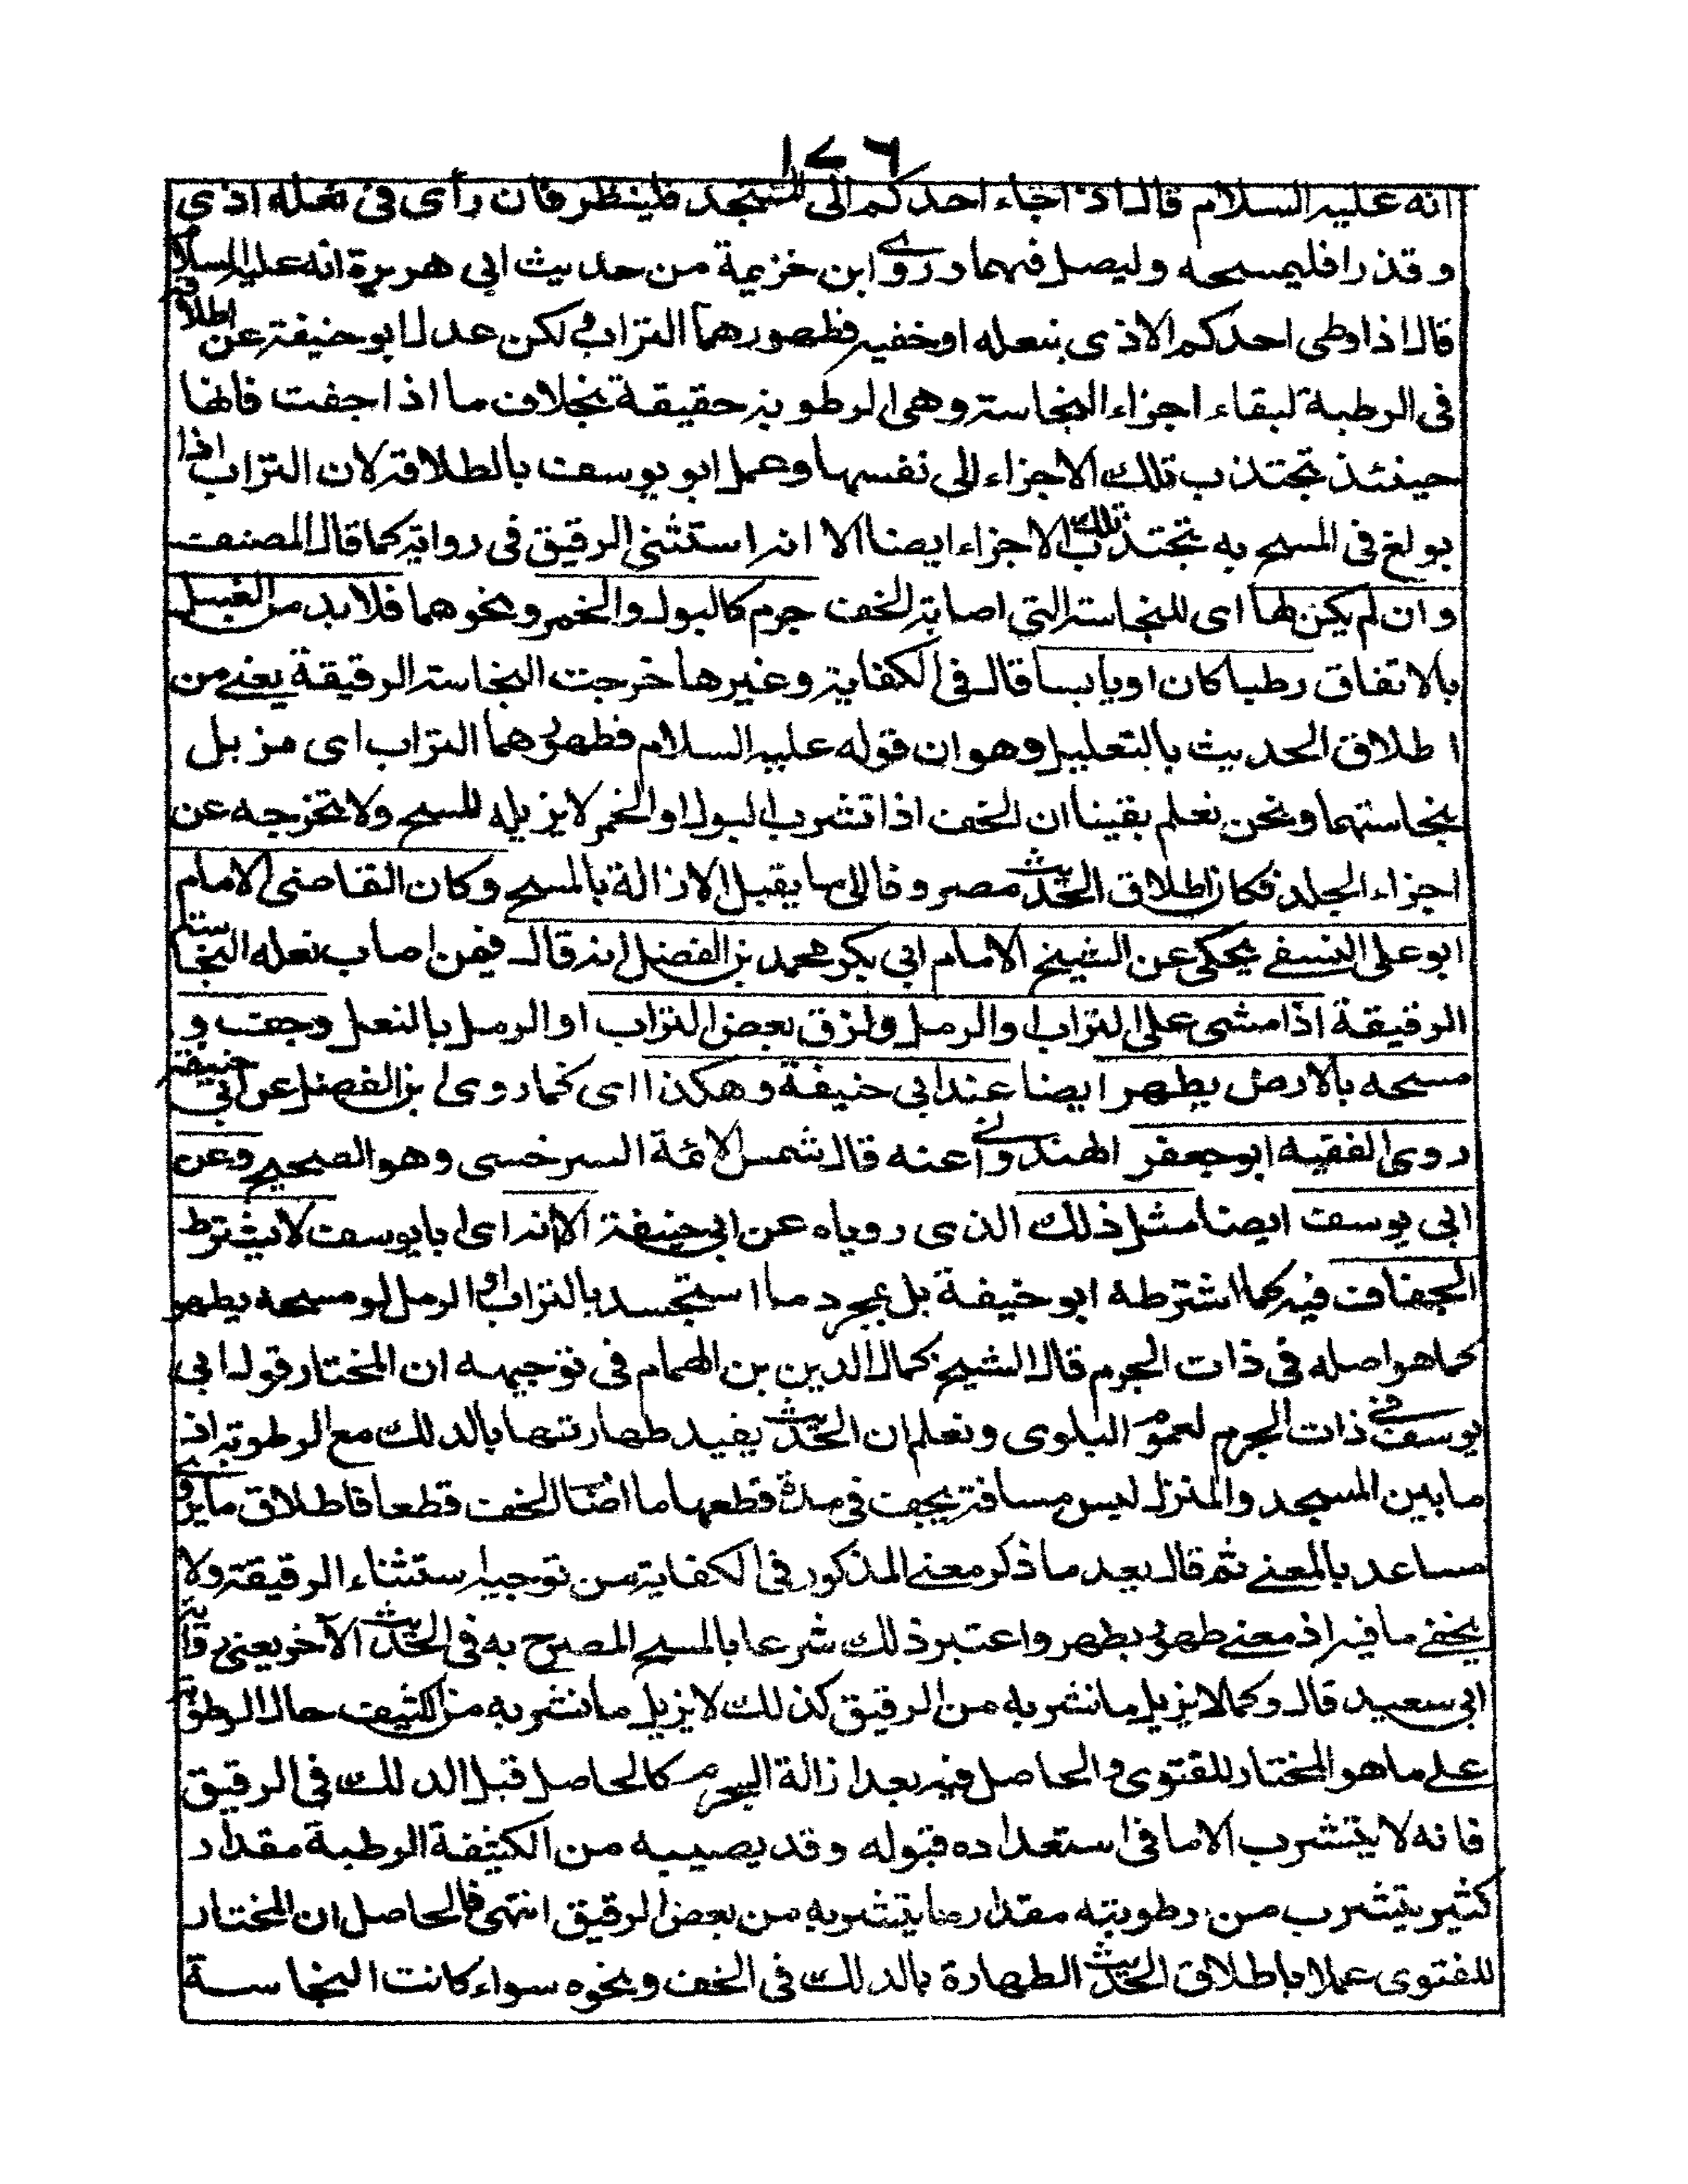 ١٧٦
انه عليه السلام قال اذا جاء احدكم الى المسجد فلينظر فان رأى فى نعله اذى
وقذرا فليمسحه وليصل فيهما وروى ابن خزيمة من حديث ابى هريرة انه عليه السلام
قال اذا وطى احدكم الاذى بنعله او خفيه فطهورهما التراب لكن عدل ابو حنيفة عن اطلاقه
فى الرطبة لبقاء اجزاء النجاسة وهى الرطوبة حقيقة بخلاف ما اذا جفت فانها
حينئذ تجتذب تلك الاجزاء الى نفسها وعمل ابو يوسف بالطلاقه لان التراب اذا
بولغ فى المسح به تجتذب تلك الاجزاء ايضا الا انه استثنى الرقيق فى رواية كما قال المصنف
وان لم يكن لها اى للنجاسة التى اصابة الخف جرم كالبول والخمر ونحوهما فلا بد من الغسل
بالاتفاق رطبا كان او يابسا قال فى الكفاية وغيرها خرجت النجاسة الرقيقة يعنى من
اطلاق الحديث بالتعليل وهو ان قوله عليه السلام فطهورهما التراب اى مزيل
نجاستهما ونحن نعلم يقينا ان الخف اذا تشرب البول او الخمر لا يزيله المسح ولا يخرجه عن
اجزاء الجلد فكان اطلاق الحديث مصروفا الى ما يقبل الازالة بالمسح وكان القاضى الامام
ابو على النسفى يحكى عن الشيخ الامام ابى بكر محمد بن الفضل انه قال فيمن اصاب نعله النجاسة
الرقيقة اذا مشى على التراب او الرمل ولزق بعض التراب او الرمل بالنعل وجف و
مسحه بالارض يطهر ايضا عند ابى حنيفة وهكذا اى كما روى ابن الفضل عن ابى حنيفة
روى الفقيه ابو جعفر الهندوانى عنه قال شمس الائمة السرخسى وهو الصحيح وعن
ابى يوسف ايضا مثل ذلك الذى روياه عن ابى حنيفة الا انه اى ابا يوسف لا يشترط
الجفاف فيه كما اشترطه ابو حنيفة بل بمجرد ما استجسد بالتراب او الرمل لو مسحه يطهر
كما هو اصله فى ذات الجرم قال الشيخ كمال الدين بن الهمام فى توجيهه ان المختار قول ابى
يوسف فى ذات الجرم لعموم البلوى ونعلم ان الحديث يفيد طهارتها بالدلك مع الرطوبة اذ
ما بين المسجد والمنزل ليس مسافة يجف فى مدة قطعها ما اصاب الخف قطعا فاطلاق ما يروى
مساعد بالمعنى ثم قال بعد ما ذكر معنى المذكور فى الكفاية من توجيه استثناء الرقيقة ولا
يخفى ما فيه اذ معنى طهور يطهر واعتبر ذلك شرعا بالمسح المصرح به فى الحديث الآخر يعنى رواية
ابى سعيد قال وكما لا يزيل ما تشربه من الرقيق كذلك لا يزيل ما تشربه من الكثيف حال الرطوبة
على ما هو المختار للفتوى والحاصل فيه بعد ازالة الجرم كالحاصل قبل الدلك فى الرقيق
فانه لا يتشرب الا ما فى استعداده قبوله وقد يصيبه من الكثيفة الرطبة مقدار
كثير يتشرب من رطوبته مقدار ما يتشربه من بعض الرقيق انتهى فالحاصل ان المختار
للفتوى عملا باطلاق الحديث الطهارة بالدلك فى الخف ونحوه سواء كانت النجاسة